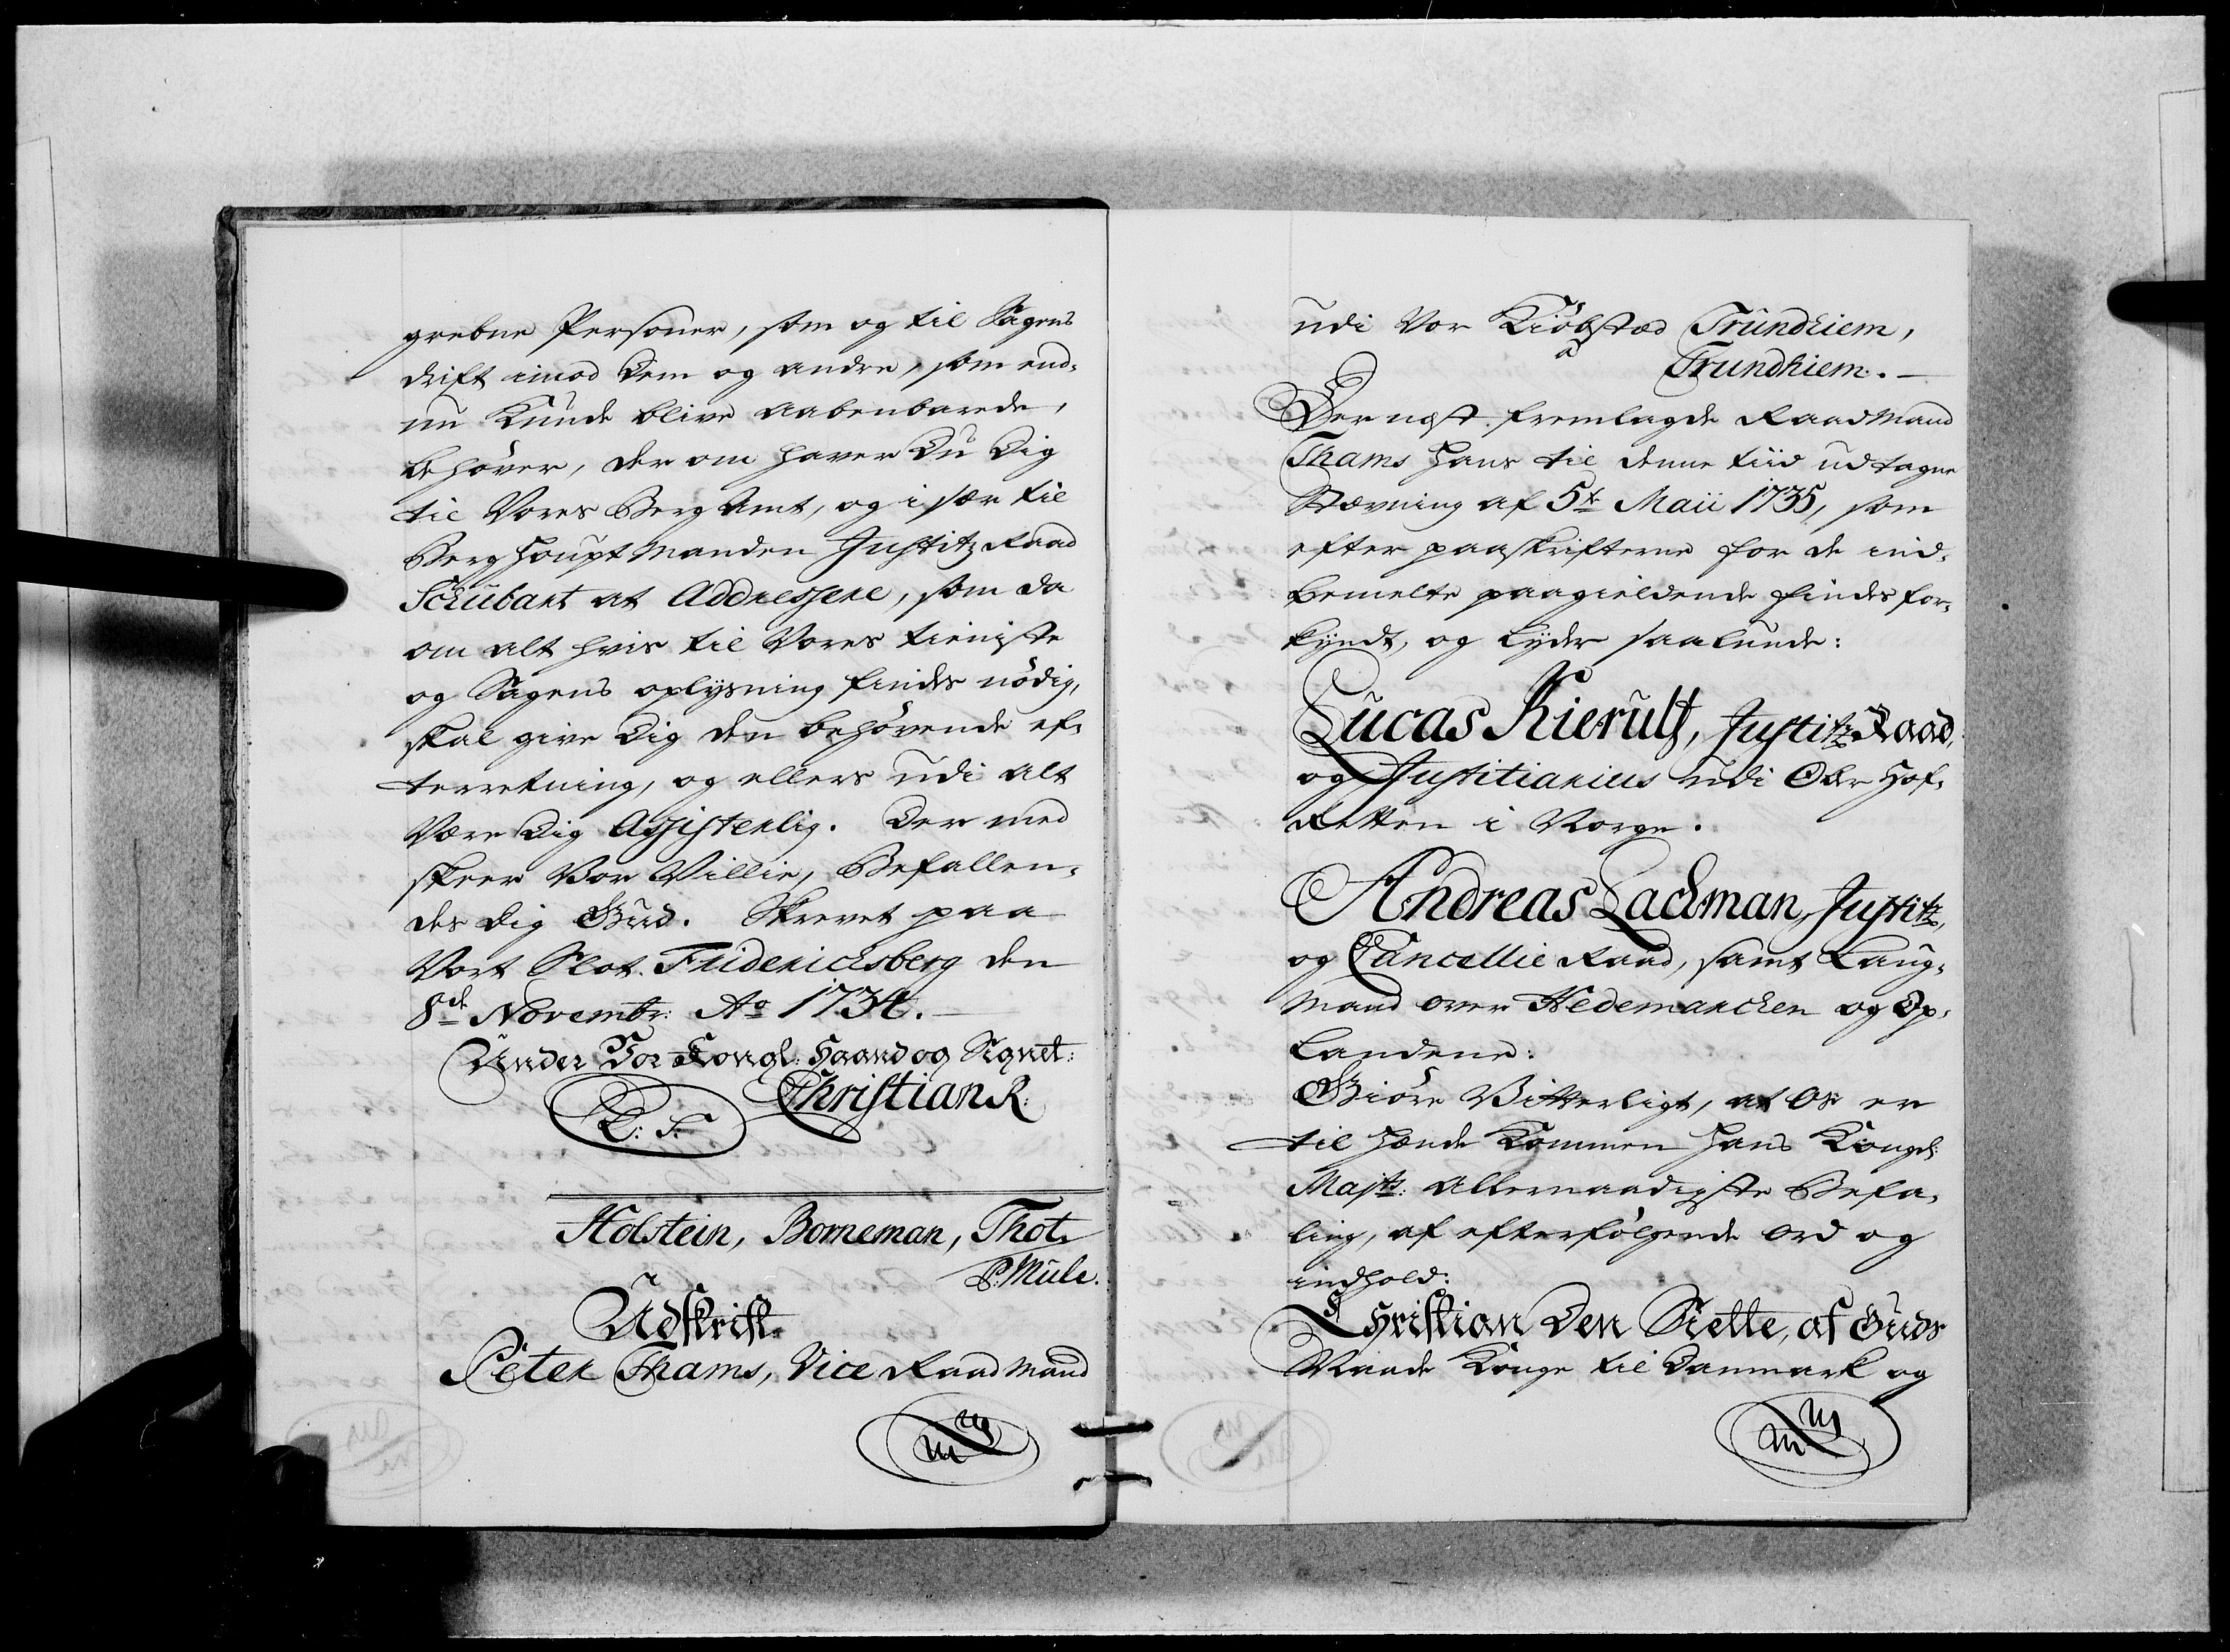 grebne Personer, som og til Sagens
drift imod Dem og andre, som end-
nu Kunde blive aabenbarede,
behöver, der om haver Du Dig
til Vores Berg Amt, og i sær til
Berg Houpt Manden Justitz Raad
Schubart at Addressere, som da
om alt hvis til Vores tieniste
og Sagens oplysning findes nödig,
skal give Dig den behövende ef-
terretning, og ellers udi alt
Være Dig Assisterlig. Der med
skeer Vor Villie, Befallen-
des dig Gud. Skrevet paa
Vort Slot Friderichsberg den
8de Novembr: Ao 1734.
Under Vor Kongl: Haand og Signet:
Christian R:
L: S:
Holstein, Borneman, Thot.
P: Mule.
Udskrift.
Peter Thams, Vice Raad Mand
udi Vor Kiöbstæd Trundhiem,
a Trundhiem. —
Der næst fremlagde Raad Mand
Thams Hans til denne tiid udtagne
Stævning af 5te Maii 1735, som
efter paaskrifterne for de ind-
bemelte paagieldende findes for-
kyndt, og lyder saalunde:
Lucas Kierulf, Justitz Raad,
og Justitiarius udi Ober Hof-
Retten i Norge.
Andreas Lachman, Justitz,
og Cancellie Raad, samt Laug-
Mand over Hedemarchen og Op-
landene:
Giöre Vitterligt, at Os er
til Hænde Kommen Hans Kongel:
Majts: Allernaadigste Befa-
ling, af efterfölgende Ord og
indhold:
Christian Den Siette, af Guds
Naade Konge til Danmark og